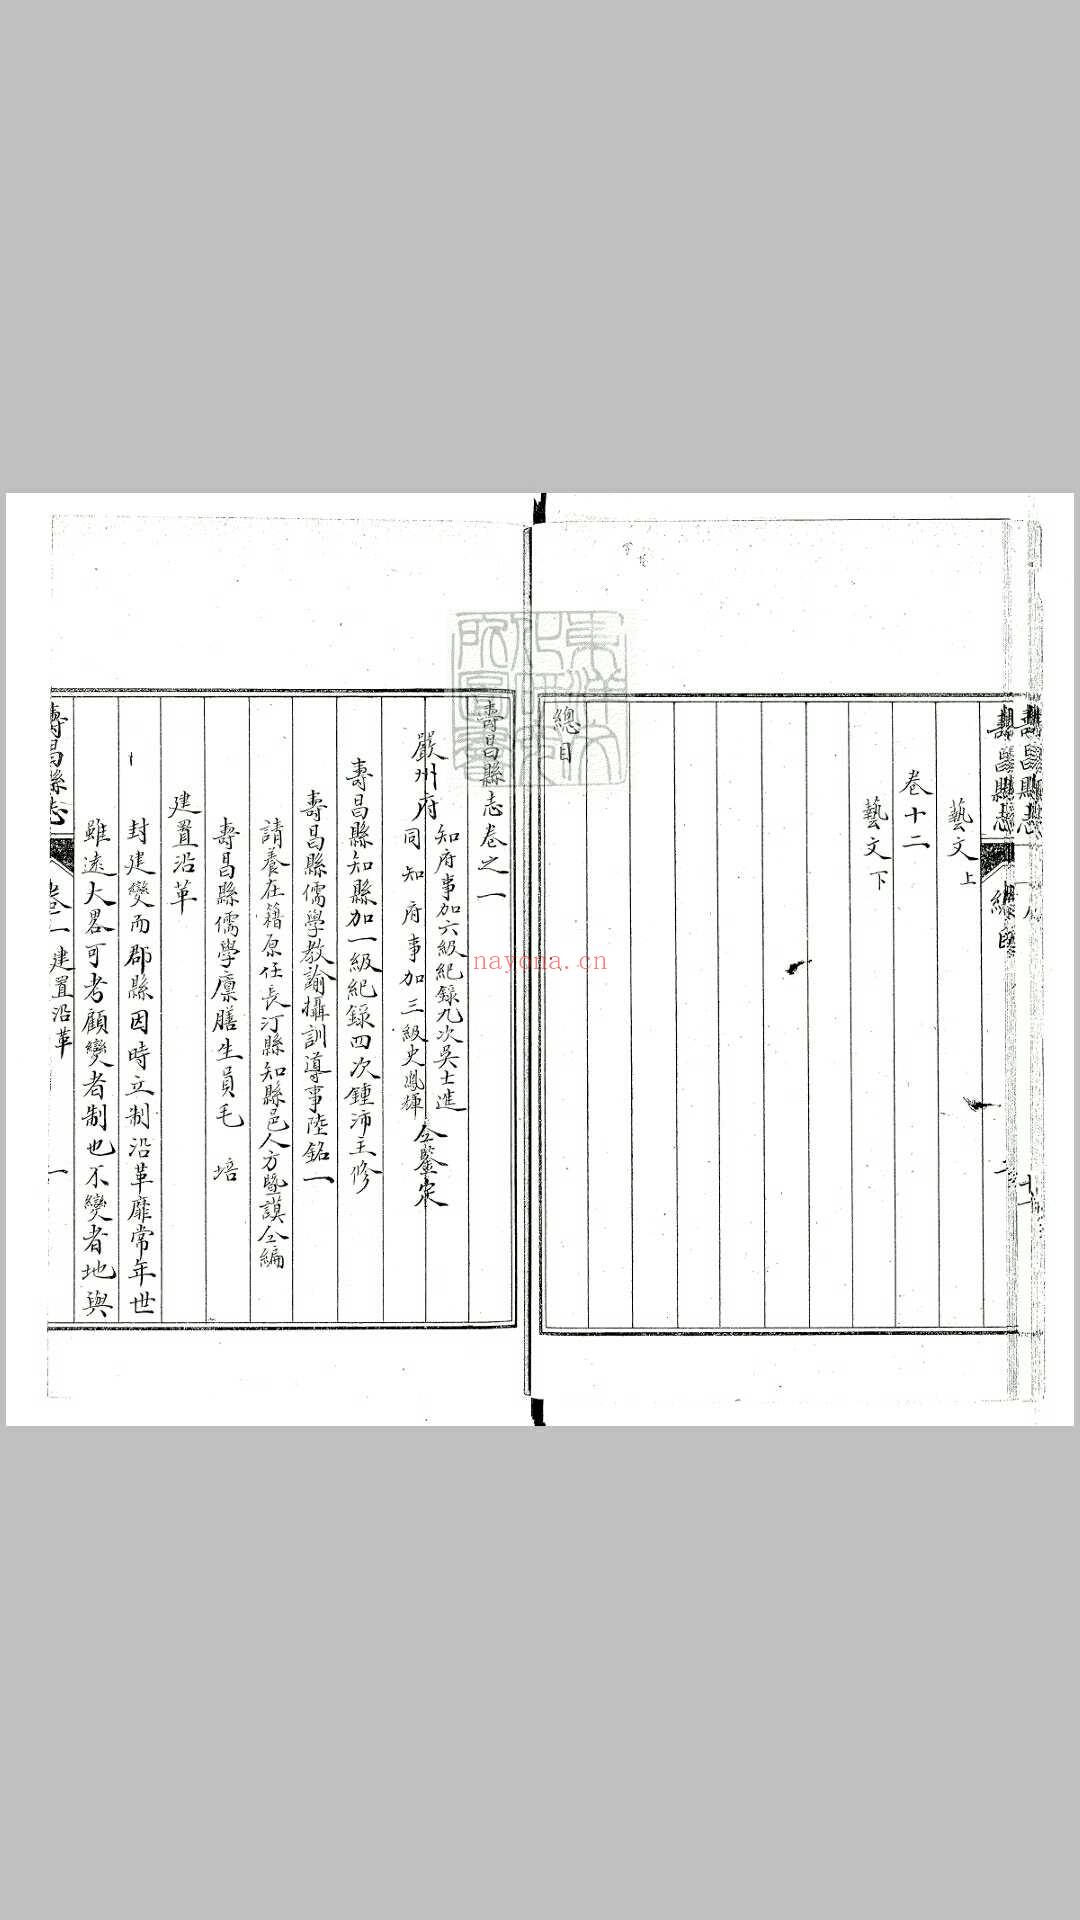 壽昌縣志
總目
藝文上
卷十二
藝文下
總目
壽昌縣志卷之一
嚴州府
知府事加六級紀錄九次吳士進
同知府事加三級史鳳輝
仝鑒定
壽昌縣知縣加一級紀錄四次鍾沛主修
壽昌縣儒學教諭攝訓導事陸銘一
請養在籍原任長汀縣知縣邑人方曁謨仝編
壽昌縣儒學廪膳生員毛 培
建置沿革
封建變而郡縣因時立制沿革靡常年世
雖遠大畧可考顧變者制也不變者地與
壽昌縣志 卷一 建置沿革 一
nayona.cn